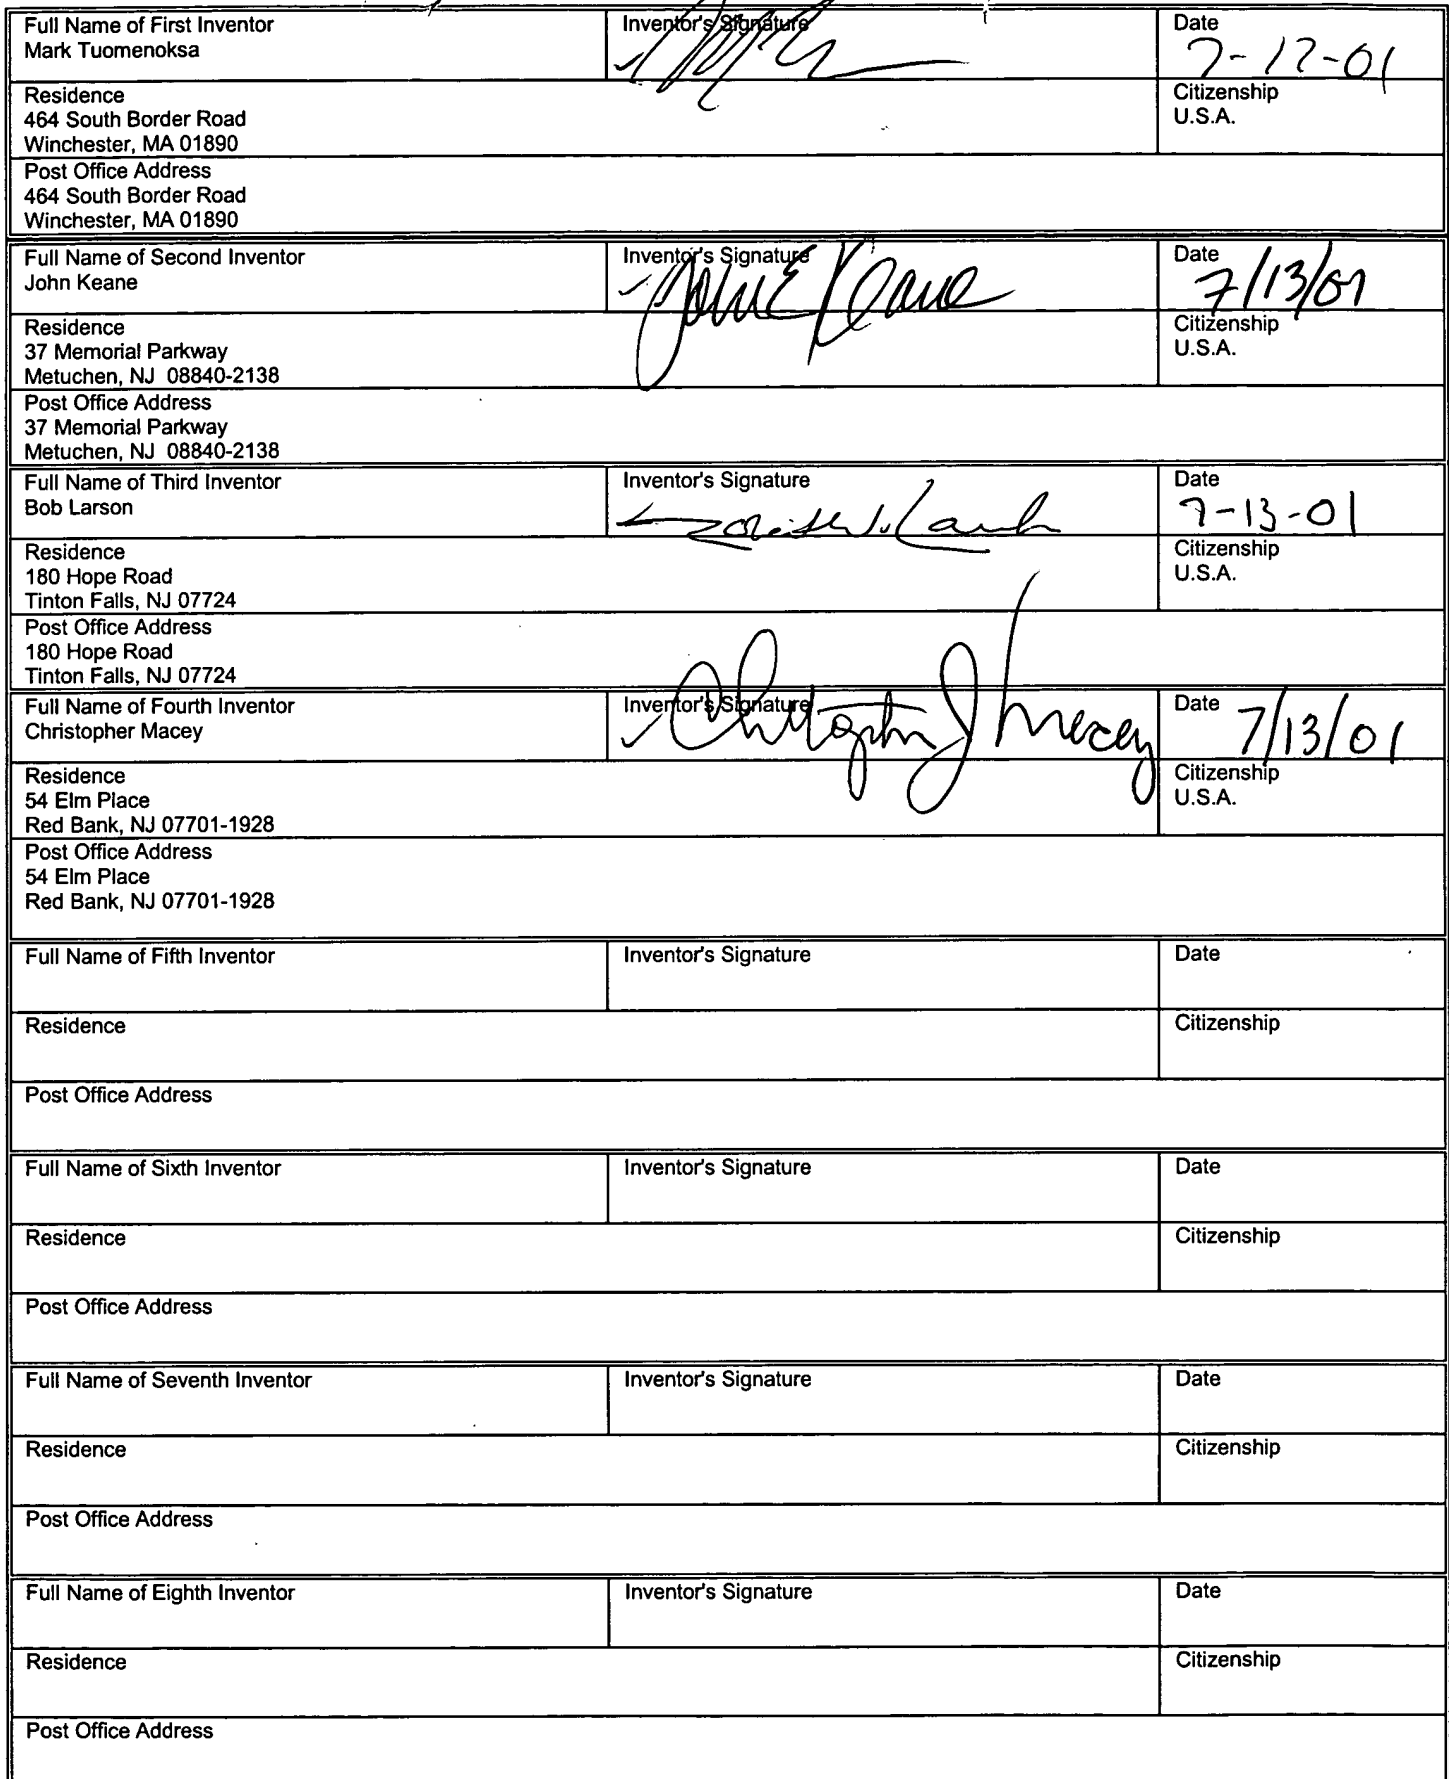 Full Name of First Inventor
Mark Tuomenoksa
Inventor's Signature
Date
7-12-01
Residence
464 South Border Road
Winchester, MA 01890
Citizenship
U.S.A.
Post Office Address
464 South Border Road
Winchester, MA 01890
Full Name of Second Inventor
John Keane
Inventor's Signature
John E Keane
Date
7/13/01
Residence
37 Memorial Parkway
Metuchen, NJ 08840-2138
Citizenship
U.S.A.
Post Office Address
37 Memorial Parkway
Metuchen, NJ 08840-2138
Full Name of Third Inventor
Bob Larson
Inventor's Signature
Date
7-13-01
Residence
180 Hope Road
Tinton Falls, NJ 07724
Citizenship
U.S.A.
Post Office Address
180 Hope Road
Tinton Falls, NJ 07724
Full Name of Fourth Inventor
Christopher Macey
Inventor's Signature
Christopher J Macey
Date
7/13/01
Residence
54 Elm Place
Red Bank, NJ 07701-1928
Citizenship
U.S.A.
Post Office Address
54 Elm Place
Red Bank, NJ 07701-1928
Full Name of Fifth Inventor
Inventor's Signature
Date
Residence
Citizenship
Post Office Address
Full Name of Sixth Inventor
Inventor's Signature
Date
Residence
Citizenship
Post Office Address
Full Name of Seventh Inventor
Inventor's Signature
Date
Residence
Citizenship
Post Office Address
Full Name of Eighth Inventor
Inventor's Signature
Date
Residence
Citizenship
Post Office Address